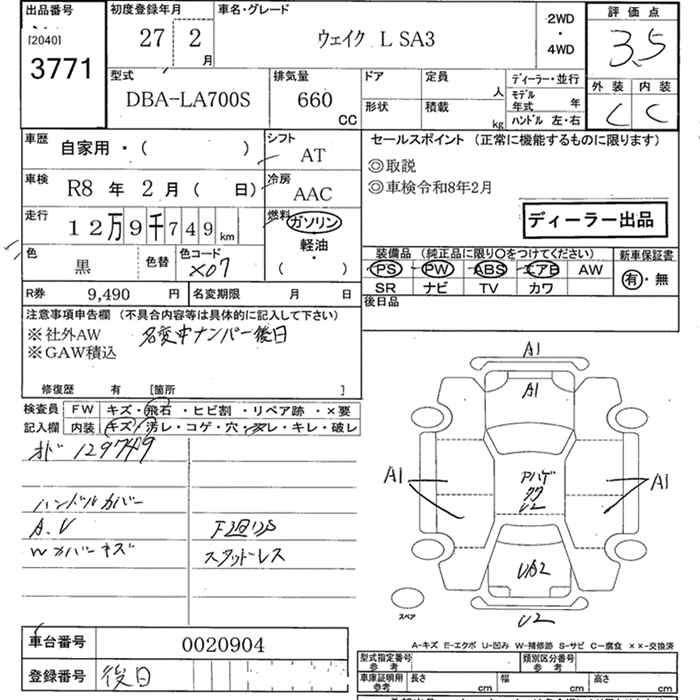 出品番号 初度登録年月 車名・グレード 2WD・4WD 評価点
[2040] 3771 27 2月 ウェイク L SA3 3.5
型式 排気量 ドア 定員 人 ディーラー・並行 外装 内装
DBA-LA700S 660 CC 形状 積載 kg モデル年式 年 C C
ハンドル 左・右
車歴 自家用・( ) シフト AT セールスポイント (正常に機能するものに限ります)
◎取説
車検 R8年 2月 ( 日) 冷房 AAC ◎車検令和8年2月
走行 12万9千749km 燃料 ガソリン・軽油・( ) ディーラー出品
色 黒 色替 色コード X07 装備品 (純正品に限り○をつけてください) 新車保証書
PS PW ABS エアB AW 有・無
SR ナビ TV カワ
R券 9,490 円 名変期限 月 日 後日品
注意事項申告欄 (不具合内容等は具体的に記入して下さい)
※社外AW 名変中ナンバー後日
※GAW積込
修復歴 有 [箇所 ]
検査員記入欄 FW キズ・飛石・ヒビ割・リペア跡・×要
内装 キズ・汚レ・コゲ・穴・スレ・キレ・破レ
オド 129749
ハンドルカバー
A.V
Wカバーキズ スタッドレス
A1
A1
A1 A1
Aハゲ
U2
UA2
スペア U2
A-キズ E-エクボ U-凹み W-補修跡 S-サビ C-腐食 ××-交換済
車台番号 0020904
登録番号 後日
型式指定番号 参考 類別区分番号 参考
車庫証明用 参考 長さ cm 幅 cm 高さ cm